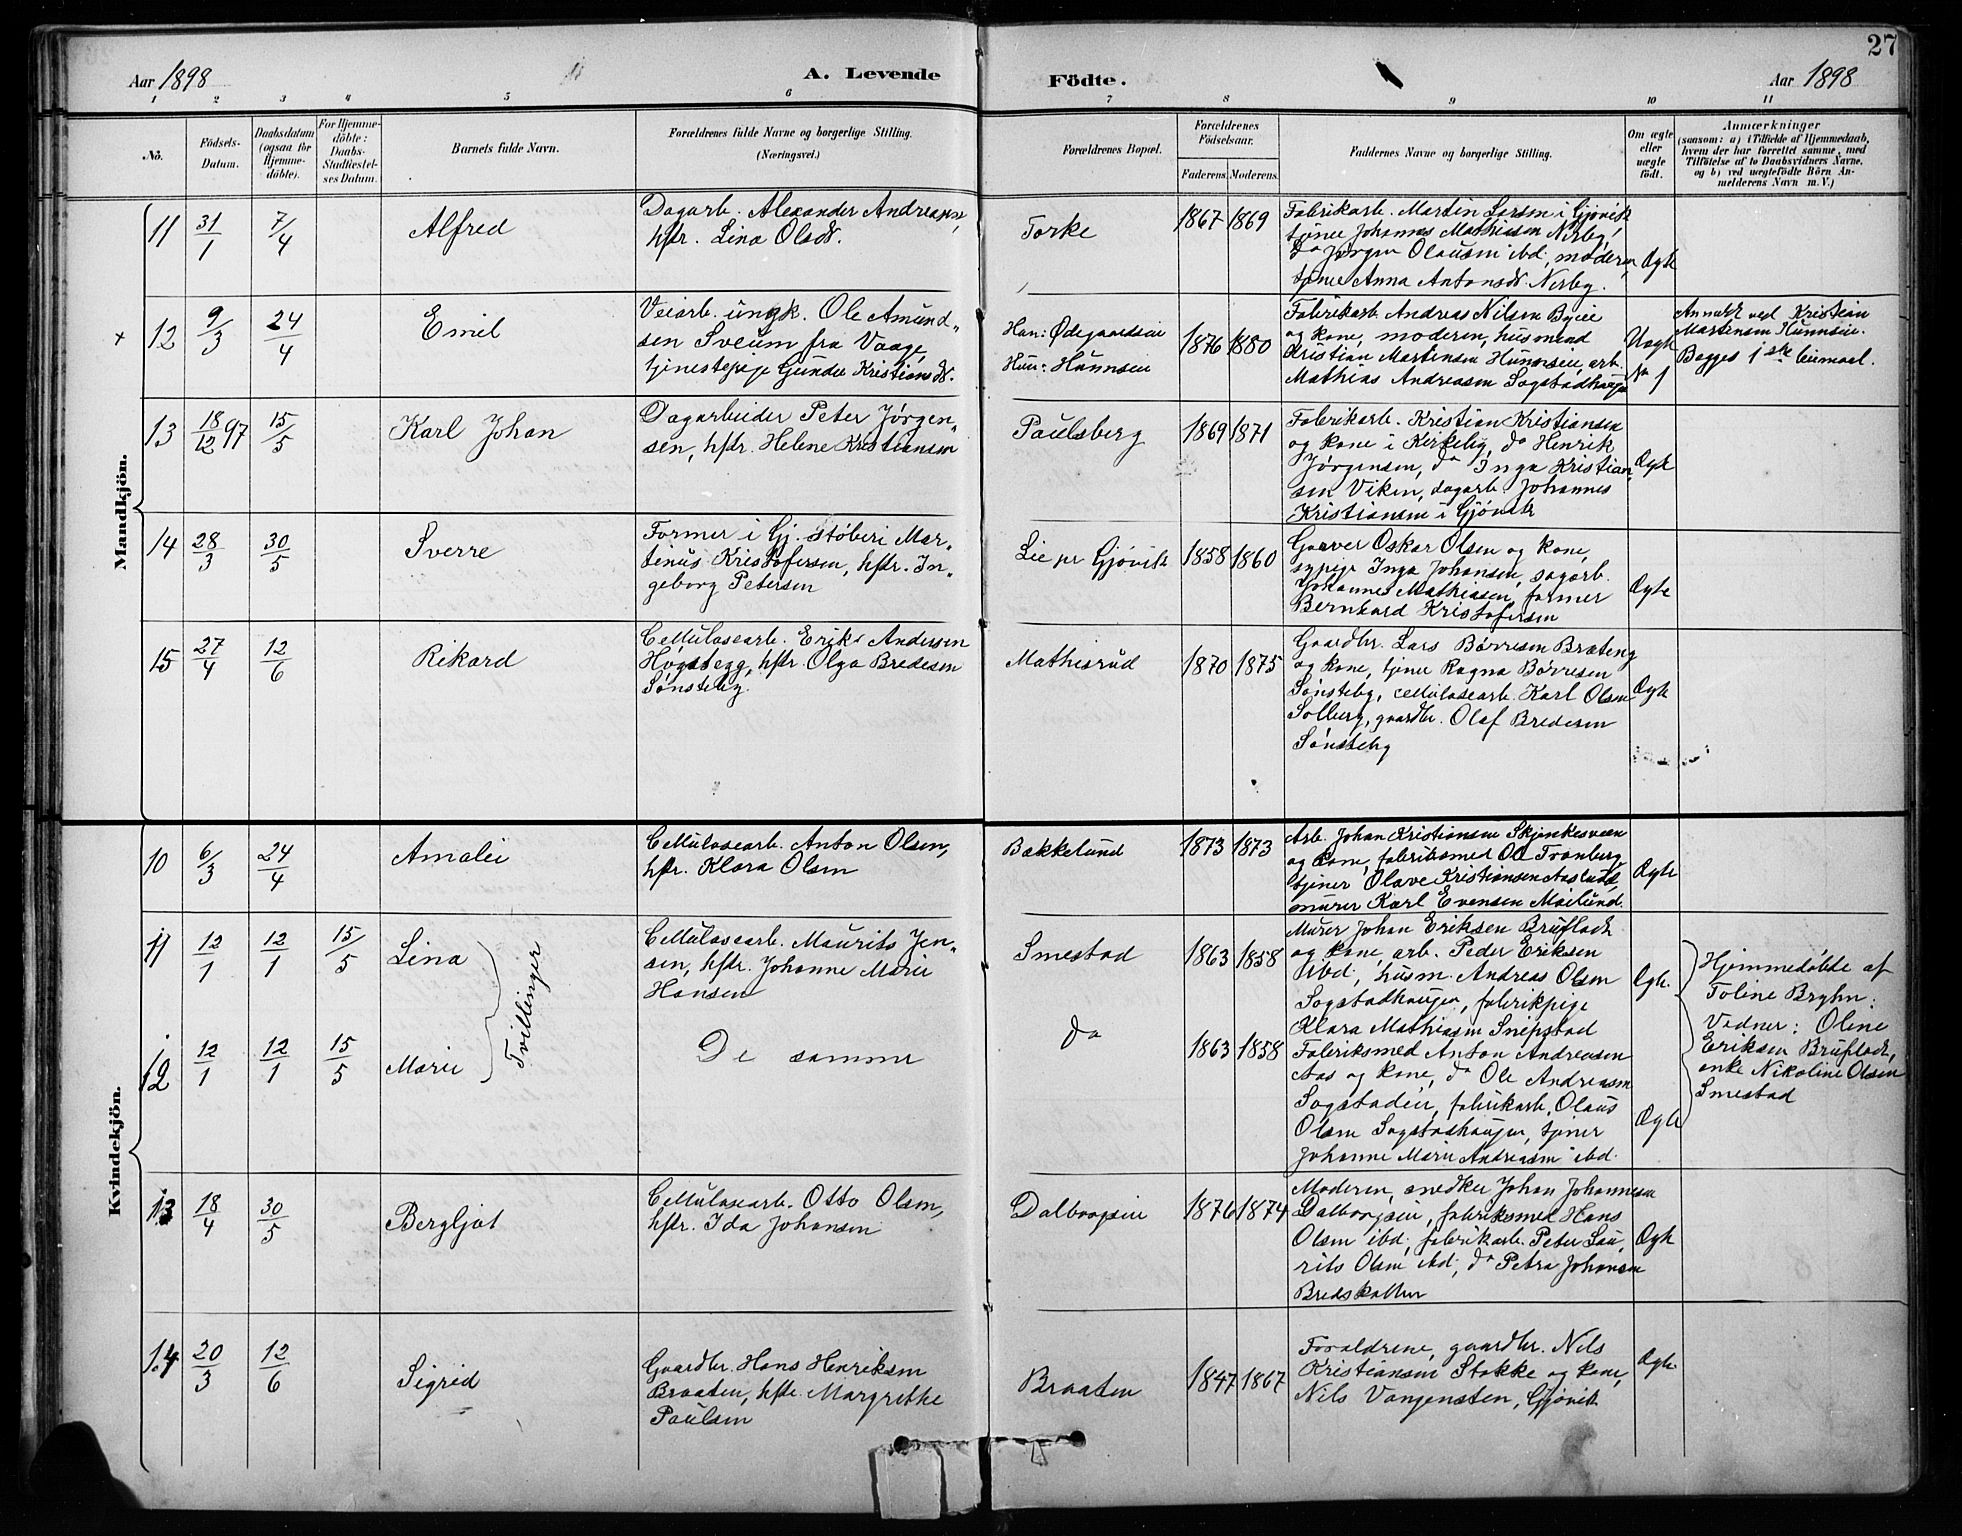 27
Aar 1898
A. Levende
Födte.
Aar 1898
1 2 3 4 5 6 7 8 9 10 11
No.
Födsels-Datum.
Daabsdatum (ogsaa for Hjemme-döbte).
For Hjemme-döbte: Daabs-Stadfæstel-ses Datum.
Barnets fulde Navn.
Forældrenes fulde Navne og borgerlige Stilling.
(Næringsvei.)
Forældrenes Bopæl.
Forældrenes Födselsaar.
Faderens. Moderens.
Faddernes Navne og borgerlige Stilling.
Om ægte eller uægte födt.
Anmærkninger
(saasom: a) i Tilfælde af Hjemmedaab,
hvem der har forrettet samme, med
Tilföielse af to Daabsvidners Navne,
og b) ved uægtefödte Börn An-
melderens Navn m. V.)
Mandkjön.
11
31/1
7/4
Alfred
Dagarb. Alexander Andreasen,
hstr. Lina Olsdr.
Torke
1867 1869
Fabrikarb. Martin Larsen i Gjøvik
tjener Johannes Mathisen Nerby,
do Jørgen Olausen ibd, moderen,
tjener Anna Antonsdr. Nerby.
Ægte
+
12
9/3
24/4
Emil
Veiarb. ungk. Ole Amund-
sen Sveum fra Vaage,
tjenestepige Gunda Kristiansdr.
Han: Ødegaardseie
Hun: Hunnseie
1876 1880
Fabrikarb. Andreas Nilsen Byeie
og kone, moderen, husmand
Kristian Martensen Hunnseie, arb.
Mathias Andreasen Sogstadhaugen
Uægte
No 1
Anmeldt ved Kristian
Martensen Hunnseie.
Begges 1ste leiermaal.
13
18/12 97
15/5
Karl Johan
Dagarbeider Peter Jørgen-
sen, hstr. Helene Kristiansen
Paulsberg
1869 1871
Fabrikarb. Kristian Kristiansen
og kone i Kirkeby, do Henrik
Jørgensen, do Inga Kristian-
sen Viken, dagarb. Johannes
Kristiansen i Gjøvik
Ægte
14
28/3
30/5
Sverre
Former i Gj. støberi Mar-
tinus Kristofersen, hstr. In-
geborg Petersen
Lie pr Gjøvik
1858 1860
Garver Oskar Olsen og kone,
sypige Inga Johansen, dagarb.
Johannes Mathiasen, former
Bernhard Kristofersen
Ægte
15
27/4
12/6
Rikard
Cellulosearb. Erik Andersen
Høgstegg, hstr. Olga Bredesen
Sønsteby.
Mathisrud
1870 1875
Gaardbr. Lars Børresen Bræteng
og kone, tjener Ragna Børresen
Sønsteby, cellulosearb. Karl Olsen
Solberg, gaardbr. Olaf Bredesen
Sønsteby
Ægte
Kvindekjön.
10
6/3
24/4
Amalie
Cellulosearb. Anton Olsen,
hstr. Klara Olsen
Bakkelund
1873 1873
Arb. Johan Kristiansen Skjenkesveen
og kone, fabriksmed Ole Tranberg
tjener Olave Kristiansen Aaslund,
murer Karl Evensen Moilund.
Ægte
11
12/1
12/1
15/5
Lina
Tvillinger
Cellulosearb. Maurits Jen-
sen, hstr. Johanne Marie
Hansen
Smestad
1863 1858
Murer Johan Eriksen Bruflodt
og kone, arb. Peder Eriksen
ibd, husm. Andreas Olsen
Sogstadhaugen, fabrikpige
Klara Mathiasen Snipstad
Ægte.
Hjemmedøbte af
Toline Bryhn.
Vidner: Oline
Eriksen Bruflodt,
enke Nikoline Olsen
Smestad
12
12/1
12/1
15/5
Marie
De samme
do
1863 1858
Fabriksmed Anton Andreasen
Aas og kone, do Ole Andreasen
Sogstadeie, fabrikarb. Olaus
Olsen Sogstadhaugen, tjener
Johanne Marie Andreasen ibd.
Ægte
13
18/4
30/5
Bergljot
Cellulosearb. Otto Olsen,
hstr. Ida Johansen
Dalborgseie
1876 1874
Moderen, snedker Johan Johannesen
Dalborgseie, fabriksmed Hans
Olsen ibd, fabrikarb. Peter Lau-
rits Olsen ibd, do Petra Johansen
Bredskallen
Ægte
14
20/3
12/6
Sigrid
Gaardbr. Hans Henriksen
Braaten, hstr. Margrethe
Paulsen
Braaten
1847 1867
Forældrene, gaardbr. Nils
Kristiansen Stokke og kone,
Nils Vangensten, Gjøvik
Ægte